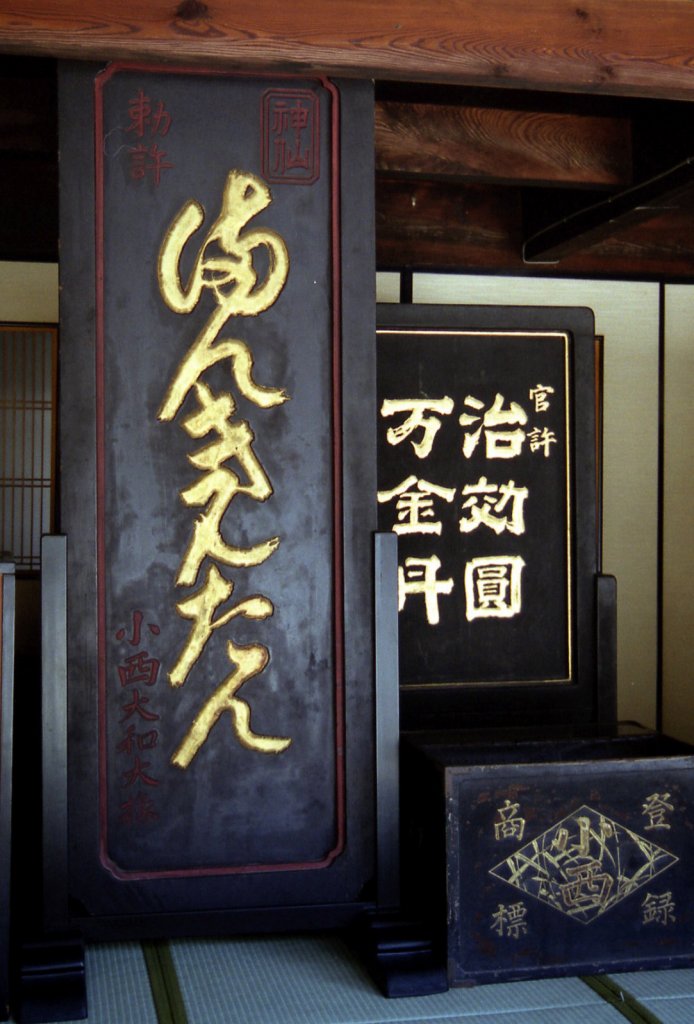 神仙
勅許
まんきんたん
小西大和大掾
官許
治効圓
万金丹
登録
商標
小西